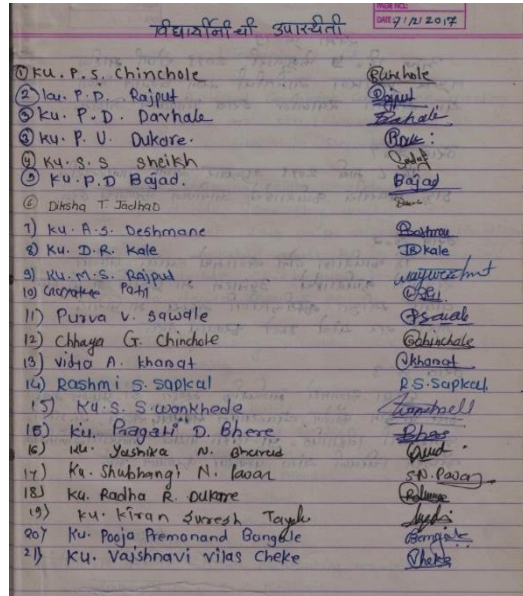 PAGE NO.
DATE 7/12/2017
विद्यार्थीनींची उपास्थिती
① Ku. P. S. Chinchole
② Ku. P. D. Rajput Rajput
③ Ku. P. D. Davhale
③ Ku. P. U. Dukare.
④ Ku. S. S Sheikh
⑤ Ku. P. D Bajad. Bajad
⑥ Diksha T Jadhao
7) Ku. A. S. Deshmane
8) Ku. D. R. Kale Kale
9) Ku. M. S. Rajput
10) Patil
11) Purva V. Sawale
12) Chhaya G. Chinchole Gchinchole
13) Vidya A. Khanat Khanat
14) Rashmi S. Sapkal R.S. Sapkal.
15) Ku. S. S. Wankhede
15) Ku. Pragati D. Bhere
16) Ku. Yashika N. Bharud
17) Ku. Shubhangi N. Pavar S.N. Pavar
18) Ku. Radha R. Dukare
19) Ku. Kiran Suresh Tayde
20) Ku. Pooja Premanand Bangale Bangale
21) Ku. Vaishnavi Vilas Cheke Cheke